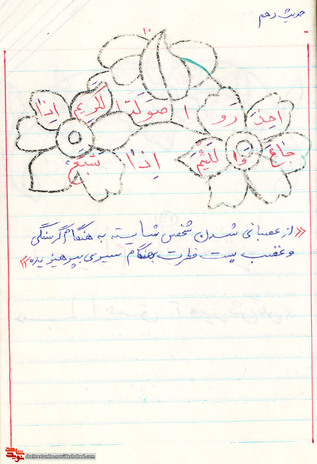 حدیث دهم
احذ رو ا صولة ا لکریم اذا
جاع و ا للئیم اذا شبع
«از عصبانی شدن شخص شایسته به هنگام گرسنگی
و غضب پست فطرت هنگام سیری بپرهیزید»